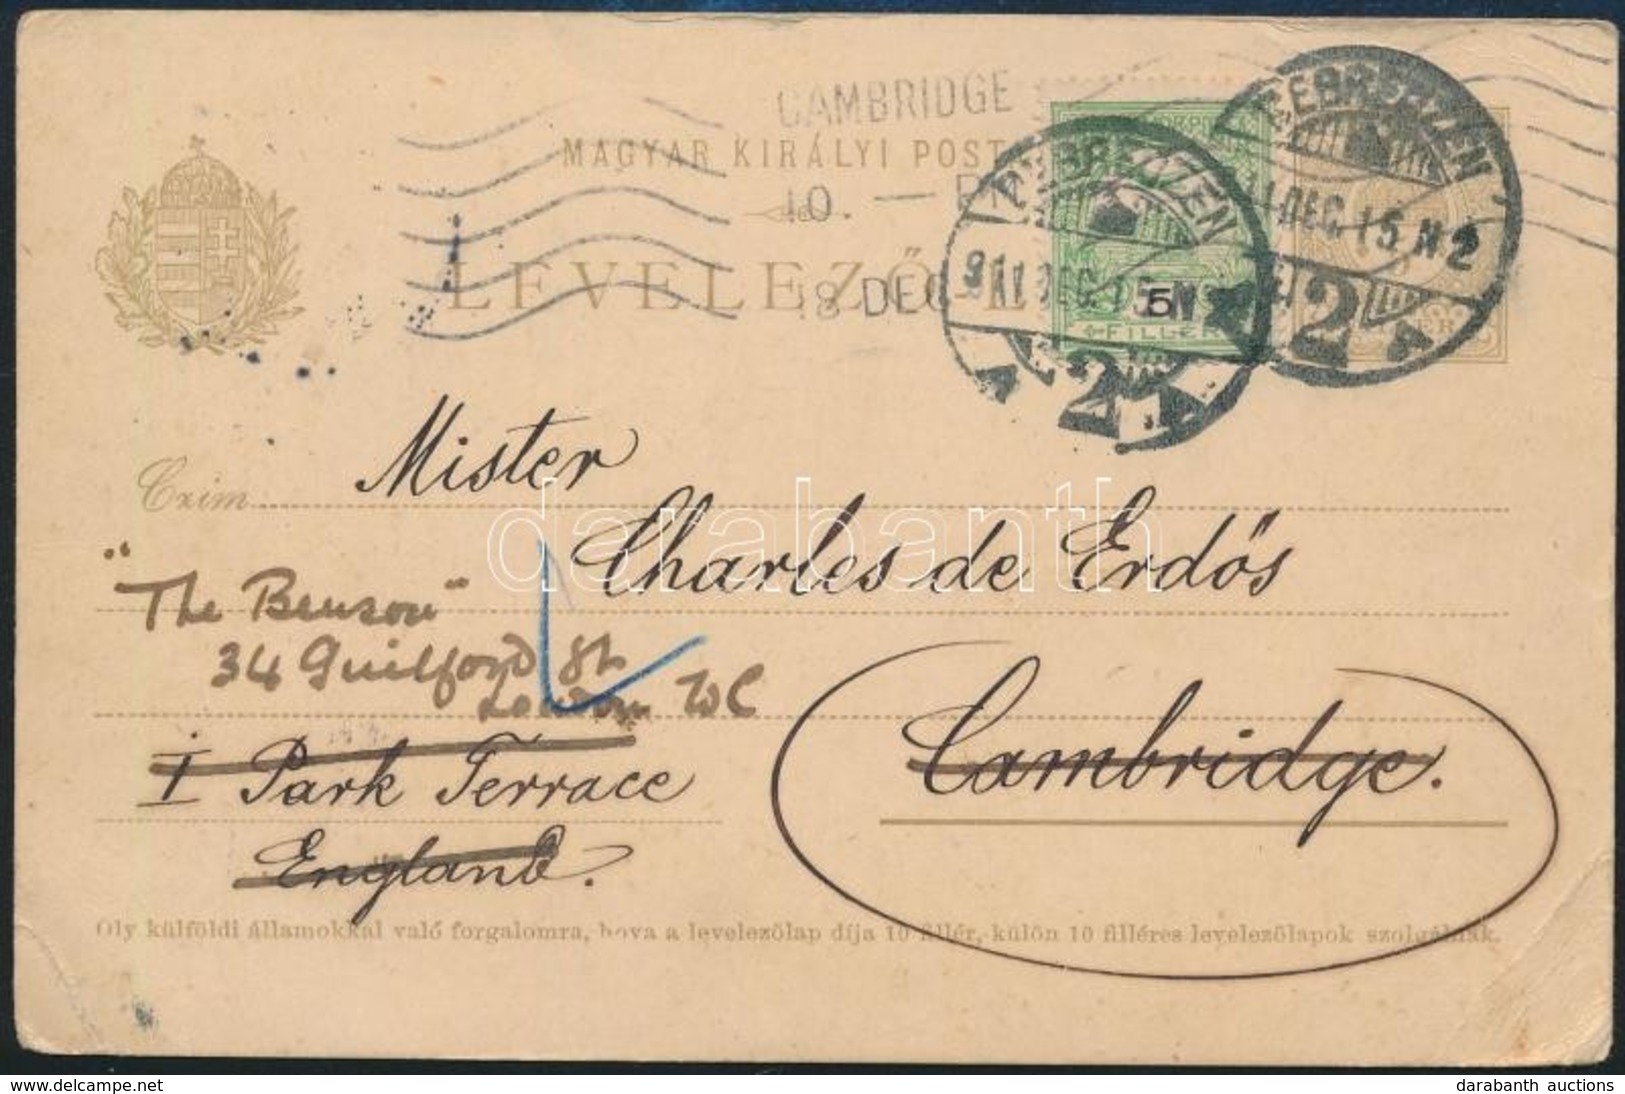 CAMBRIDGE
MAGYAR KIRÁLYI POST
10. —
LEVELEZŐ-L
18 DEC
DEBRECZEN
DEC 15 N 2
2 A
5
FILLÉR
Mister
Czim
Charles de Erdős
"The Benson"
34 Guilford St
London WC
Cambridge.
1 Park Terrace
England.
Oly külföldi államokkal való forgalomra, hova a levelezőlap dija 10 fillér, külön 10 filléres levelezőlapok szolgálnak.
darabanth
darabanth auctions
www.delcampe.net